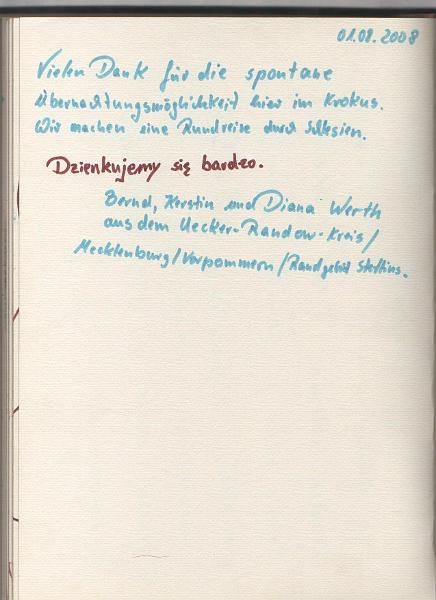 01.08.2008
Vielen Dank für die spontane
Übernachtungsmöglichkeit hier im Krokus.
Wir machen eine Rundreise durch Schlesien.
Dzienkujemy się bardzo.
Bernd, Kerstin und Diana Werth
aus dem Uecker-Randow-Kreis/
Mecklenburg/Vorpommern/Randgebiet Stettins.